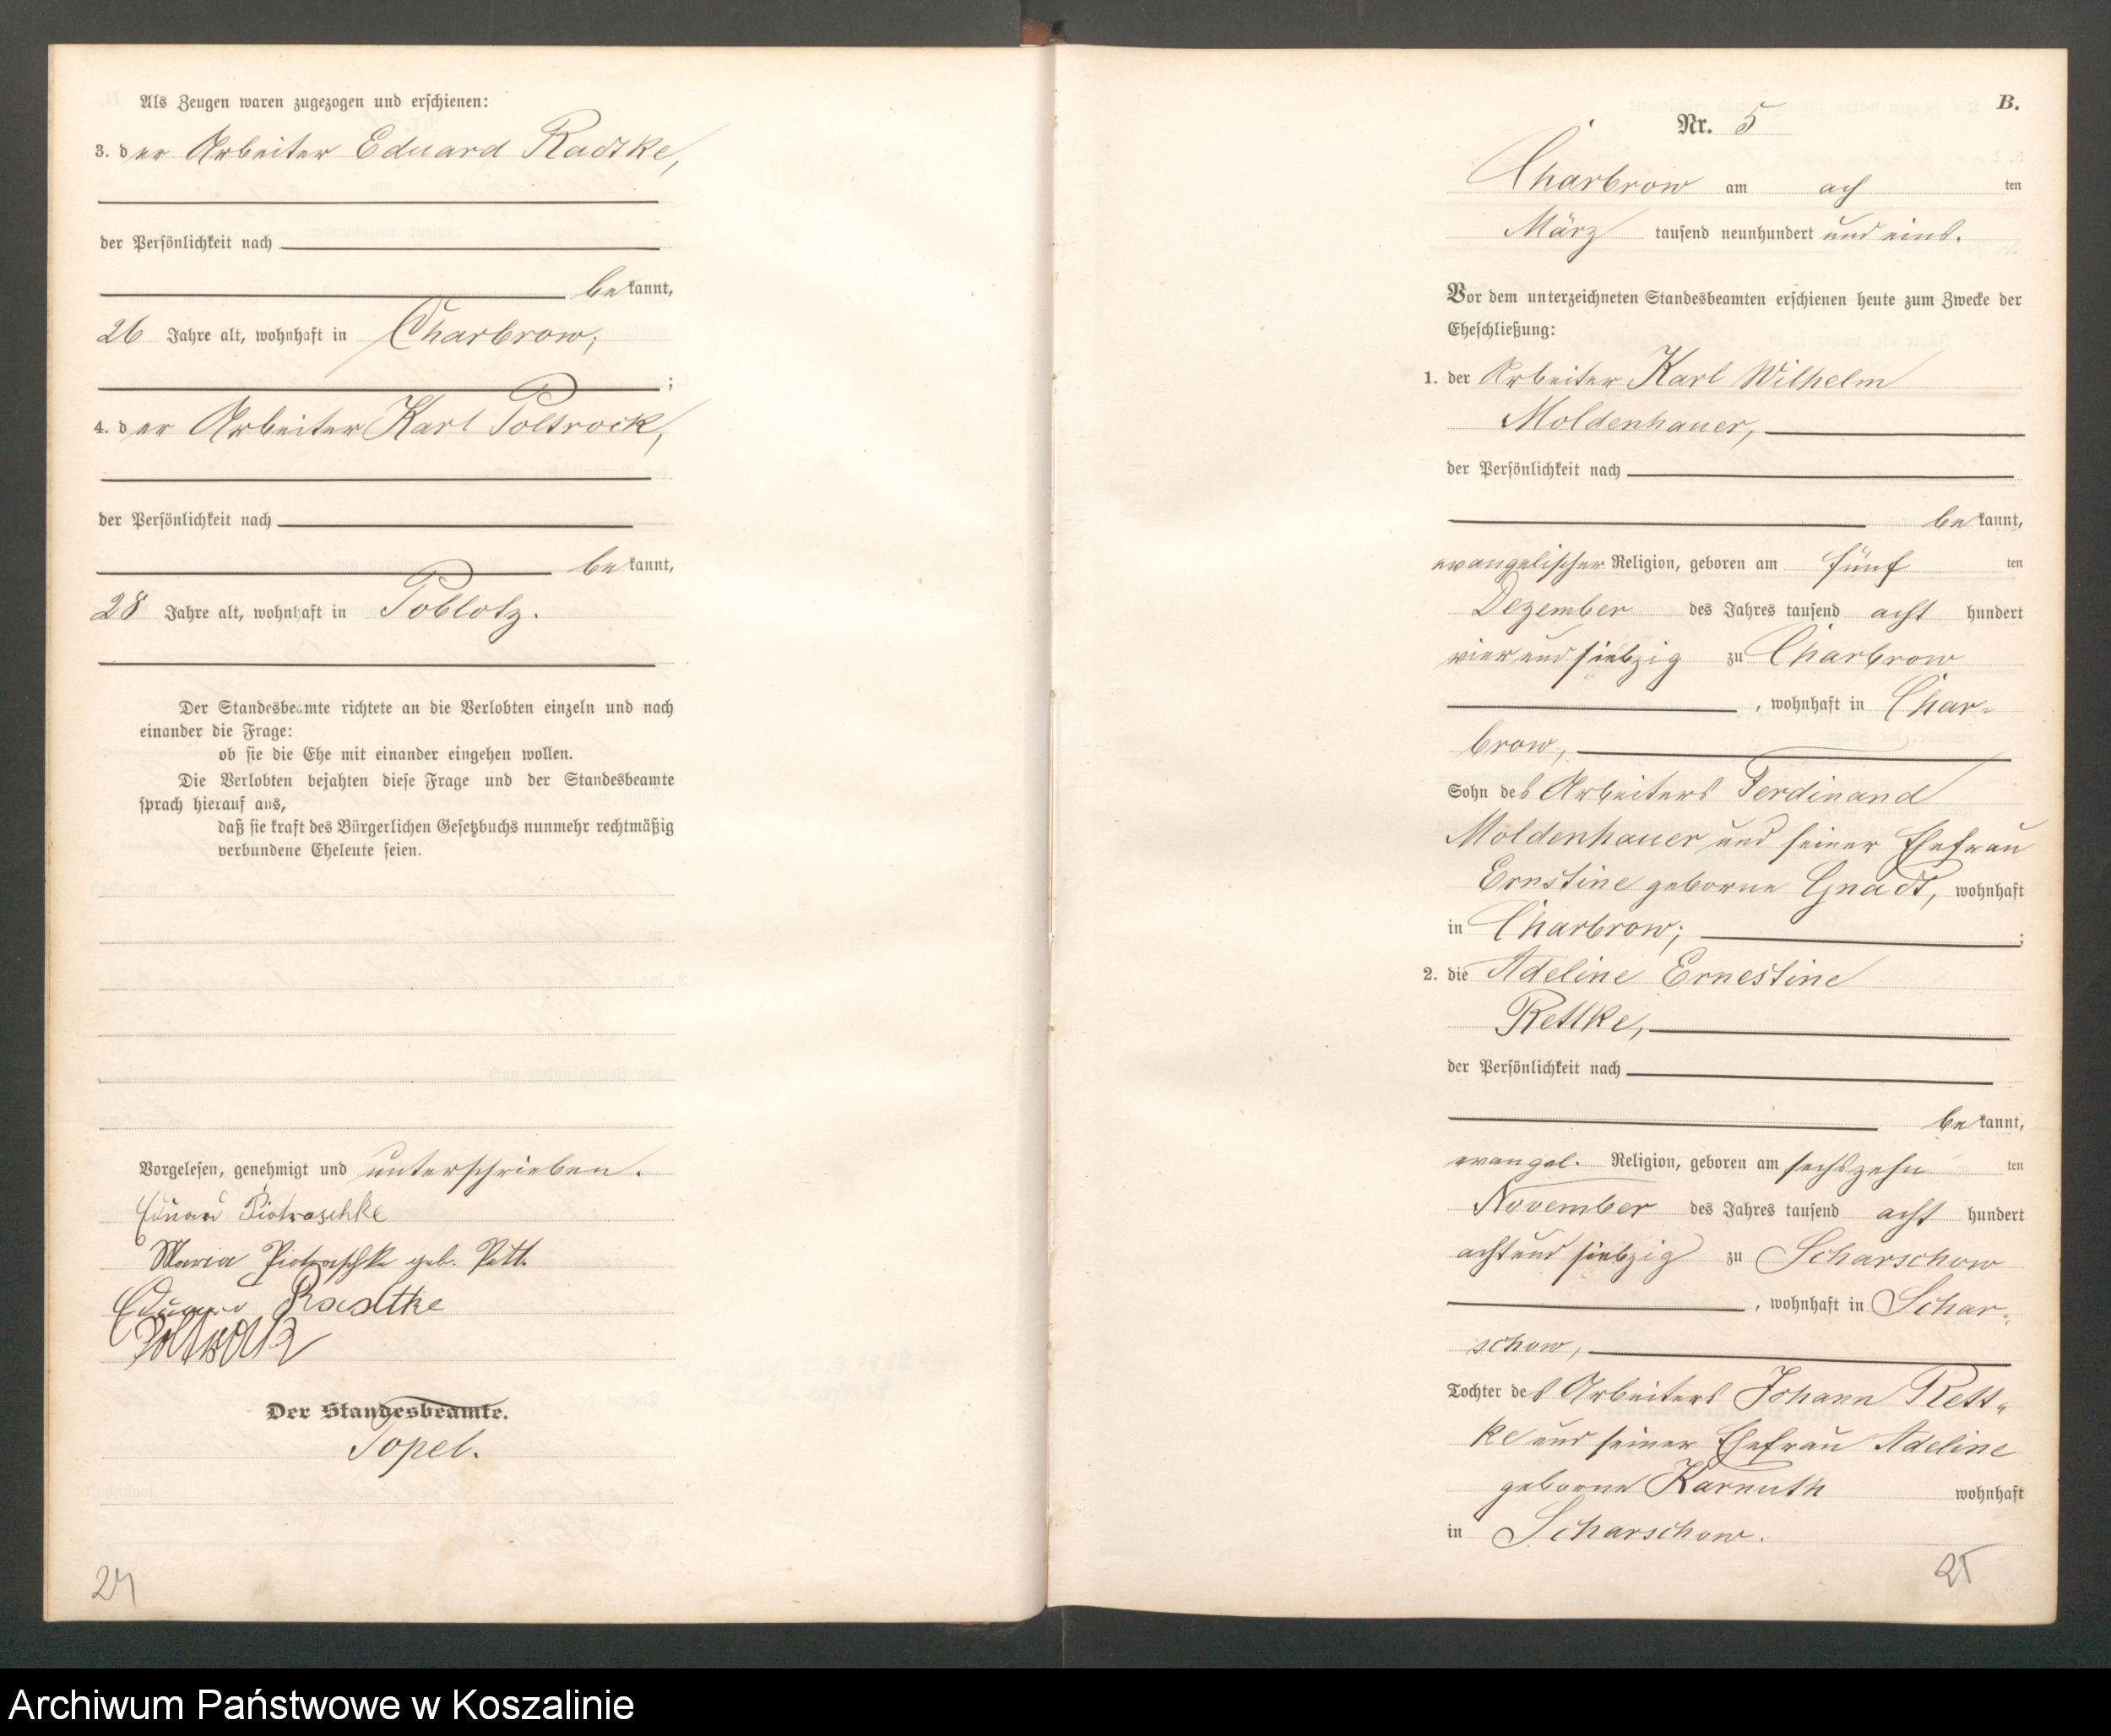 Als Zeugen waren zugezogen und erschienen:
3. der Arbeiter Eduard Radtke,
der Persönlichkeit nach
bekannt,
26 Jahre alt, wohnhaft in Charbrow;
;
4. der Arbeiter Karl Poltrock,
der Persönlichkeit nach
bekannt,
28 Jahre alt, wohnhaft in Poblotz.
Der Standesbeamte richtete an die Verlobten einzeln und nach
einander die Frage:
ob sie die Ehe mit einander eingehen wollen.
Die Verlobten bejahten diese Frage und der Standesbeamte
sprach hierauf aus,
daß sie kraft des Bürgerlichen Gesetzbuchs nunmehr rechtmäßig
verbundene Eheleute seien.
Vorgelesen, genehmigt und unterschrieben.
Eduard Piotraschke
Maria Piotraschke geb. Pett.
Eduard Radtke
Poltrock
Der Standesbeamte.
Topel.
24
B.
Nr. 5
Charbrow am achten
März tausend neunhundert und eins.
Vor dem unterzeichneten Standesbeamten erschienen heute zum Zwecke der
Eheschließung:
1. der Arbeiter Karl Wilhelm
Moldenhauer,
der Persönlichkeit nach
bekannt,
evangelischer Religion, geboren am fünften
Dezember des Jahres tausend achthundert
vier und siebzig zu Charbrow
, wohnhaft in Char-
brow,
Sohn des Arbeiters Ferdinand
Moldenhauer und seiner Ehefrau
Ernstine geborne Gnadt, wohnhaft
in Charbrow; ;
2. die Adeline Ernestine
Rettke,
der Persönlichkeit nach
bekannt,
evangel. Religion, geboren am sechszehnten
November des Jahres tausend achthundert
acht und siebzig zu Scharschow
, wohnhaft in Schar-
schow,
Tochter des Arbeiters Johann Rett-
ke und seiner Ehefrau Adeline
geborne Karnuth wohnhaft
in Scharschow.
25
Archiwum Państwowe w Koszalinie